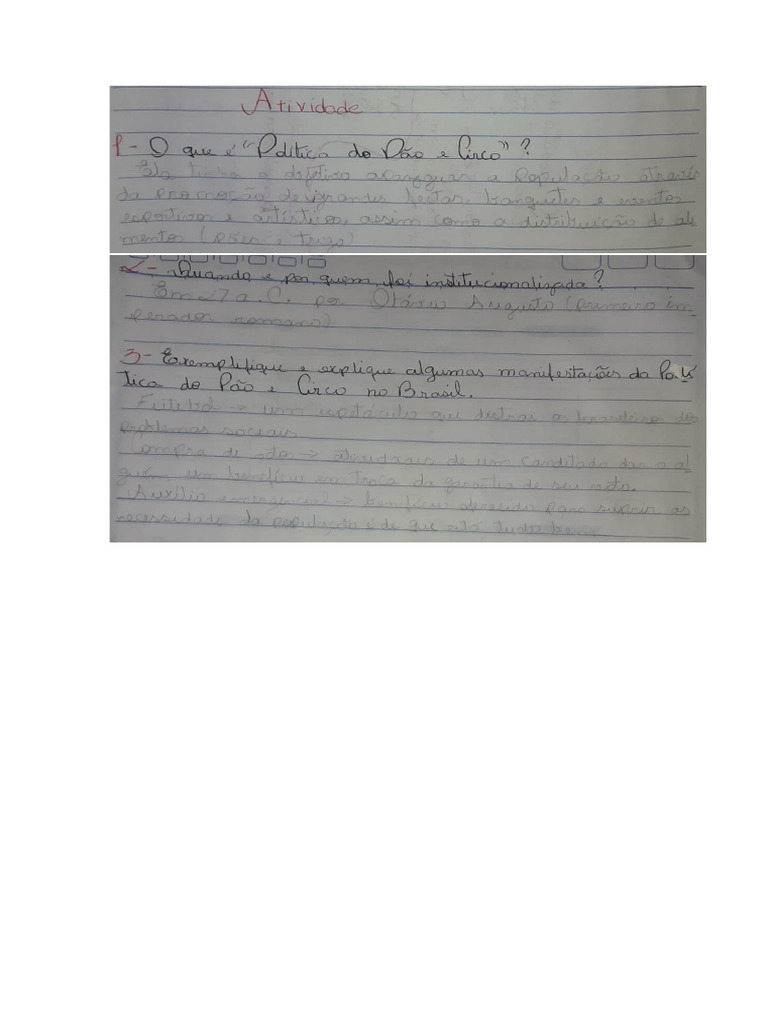 Atividade
1- O que é "Política do Pão e Circo"?
Ela tinha o objetivo apaziguar a população através
da promoção de grandes festas, banquetes e eventos
esportivos e artísticos, assim como a distribuição de ali
mentos (pães e trigo)
2- Quando e por quem foi institucionalizada?
Em 27 a.C. por Otávio Augusto (primeiro im-
perador romano)
3- Exemplifique e explique algumas manifestações da Polí
tica do Pão e Circo no Brasil.
Futebol → um espetáculo que distrai os brasileiros dos
problemas sociais
Compra de voto → de um candidato dar a al-
guém um benefício em troca da garantia de seu voto.
Auxílio emergencial → benefício oferecido para suprir as
necessidade da população e de que está tudo bem